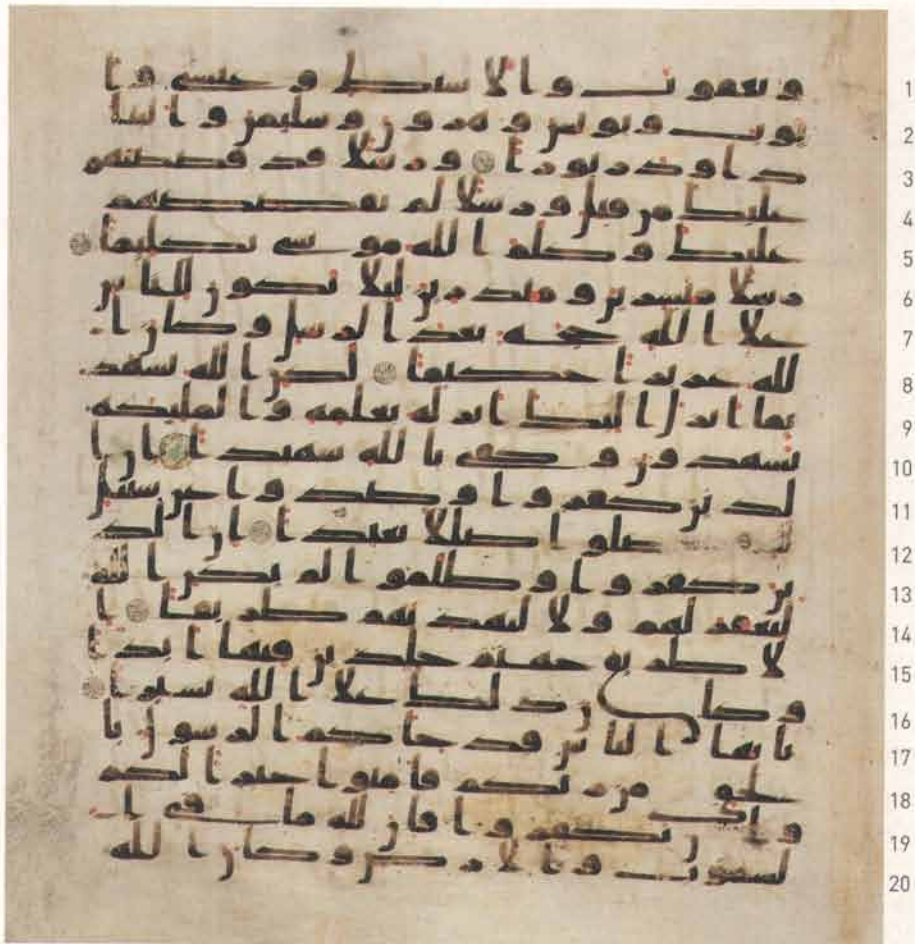 ويعقوب والاسبط وعيسى وا 1
يوب ويونس وهرون وسليمن واتينا 2
داود زبورا ورسلا قد قصصنهم 3
عليك من قبل ورسلا لم نقصصهم 4
عليك وكلم الله موسى تكليما 5
رسلا مبشرين ومنذرين ليلا يكون للناس 6
علا الله حجة بعد الرسل وكان ا 7
لله عزيزا حكيما لكن الله يشهد 8
بما انزل اليك انزله بعلمه والمليكة 9
يشهدون وكفى بالله شهيدا ان ا 10
لذين كفروا وصدوا عن سبيل 11
ضلوا ضللا بعيدا ان الذ 12
ين كفروا وظلموا لم يكن الله 13
ليغفر لهم ولا ليهديهم طريقا ا 14
لا طريق جهنم خلدين فيها ابدا 15
وكان ذلك علا الله يسيرا 16
يايها الناس قد جاكم الرسول با 17
لحق من ربكم فامنوا خيرا لكم 18
وان تكفروا فان لله ما في ا 19
لسموت والارض وكان الله 20